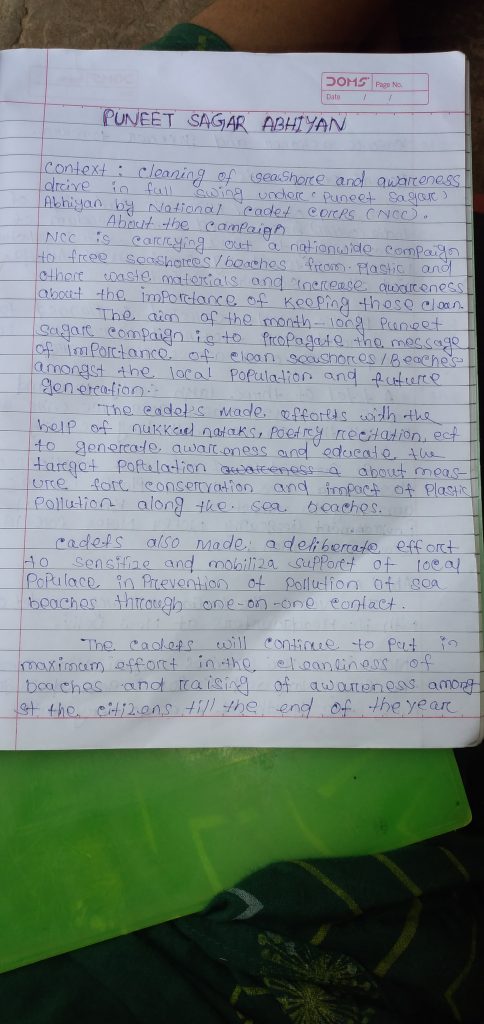 DOMS
Page No.
Date / /
PUNEET SAGAR ABHIYAN
Context : Cleaning of seashore and awareness
drive in full swing under 'Puneet Sagar'
Abhiyan by National Cadet Corps (NCC).
About the campaign
NCC is carrying out a nationwide compaign
to free seashores/beaches from Plastic and
other waste materials and increase awareness
about the importance of Keeping these clean
The aim of the month-long Puneet
Sagar compaign is to Propagate the message
of importance of clean seashores/Beaches
amongst the local Population and future
generation.
The cadets made efforts with the
help of nukkad nataks, Poetry recitation, ect
to generate awareness and educate the
target Population awareness a about meas-
ure for conservation and impact of Plastic
Pollution along the sea beaches.
Cadets also made a deliberate effort
to sensitize and mobiliza support of local
Populace in Prevention of Pollution of sea
beaches through one-on-one contact.
The cadets will continue to Put in
maximum effort in the cleanliness of
beaches and raising of awareness among
st the citizens till the end of the year